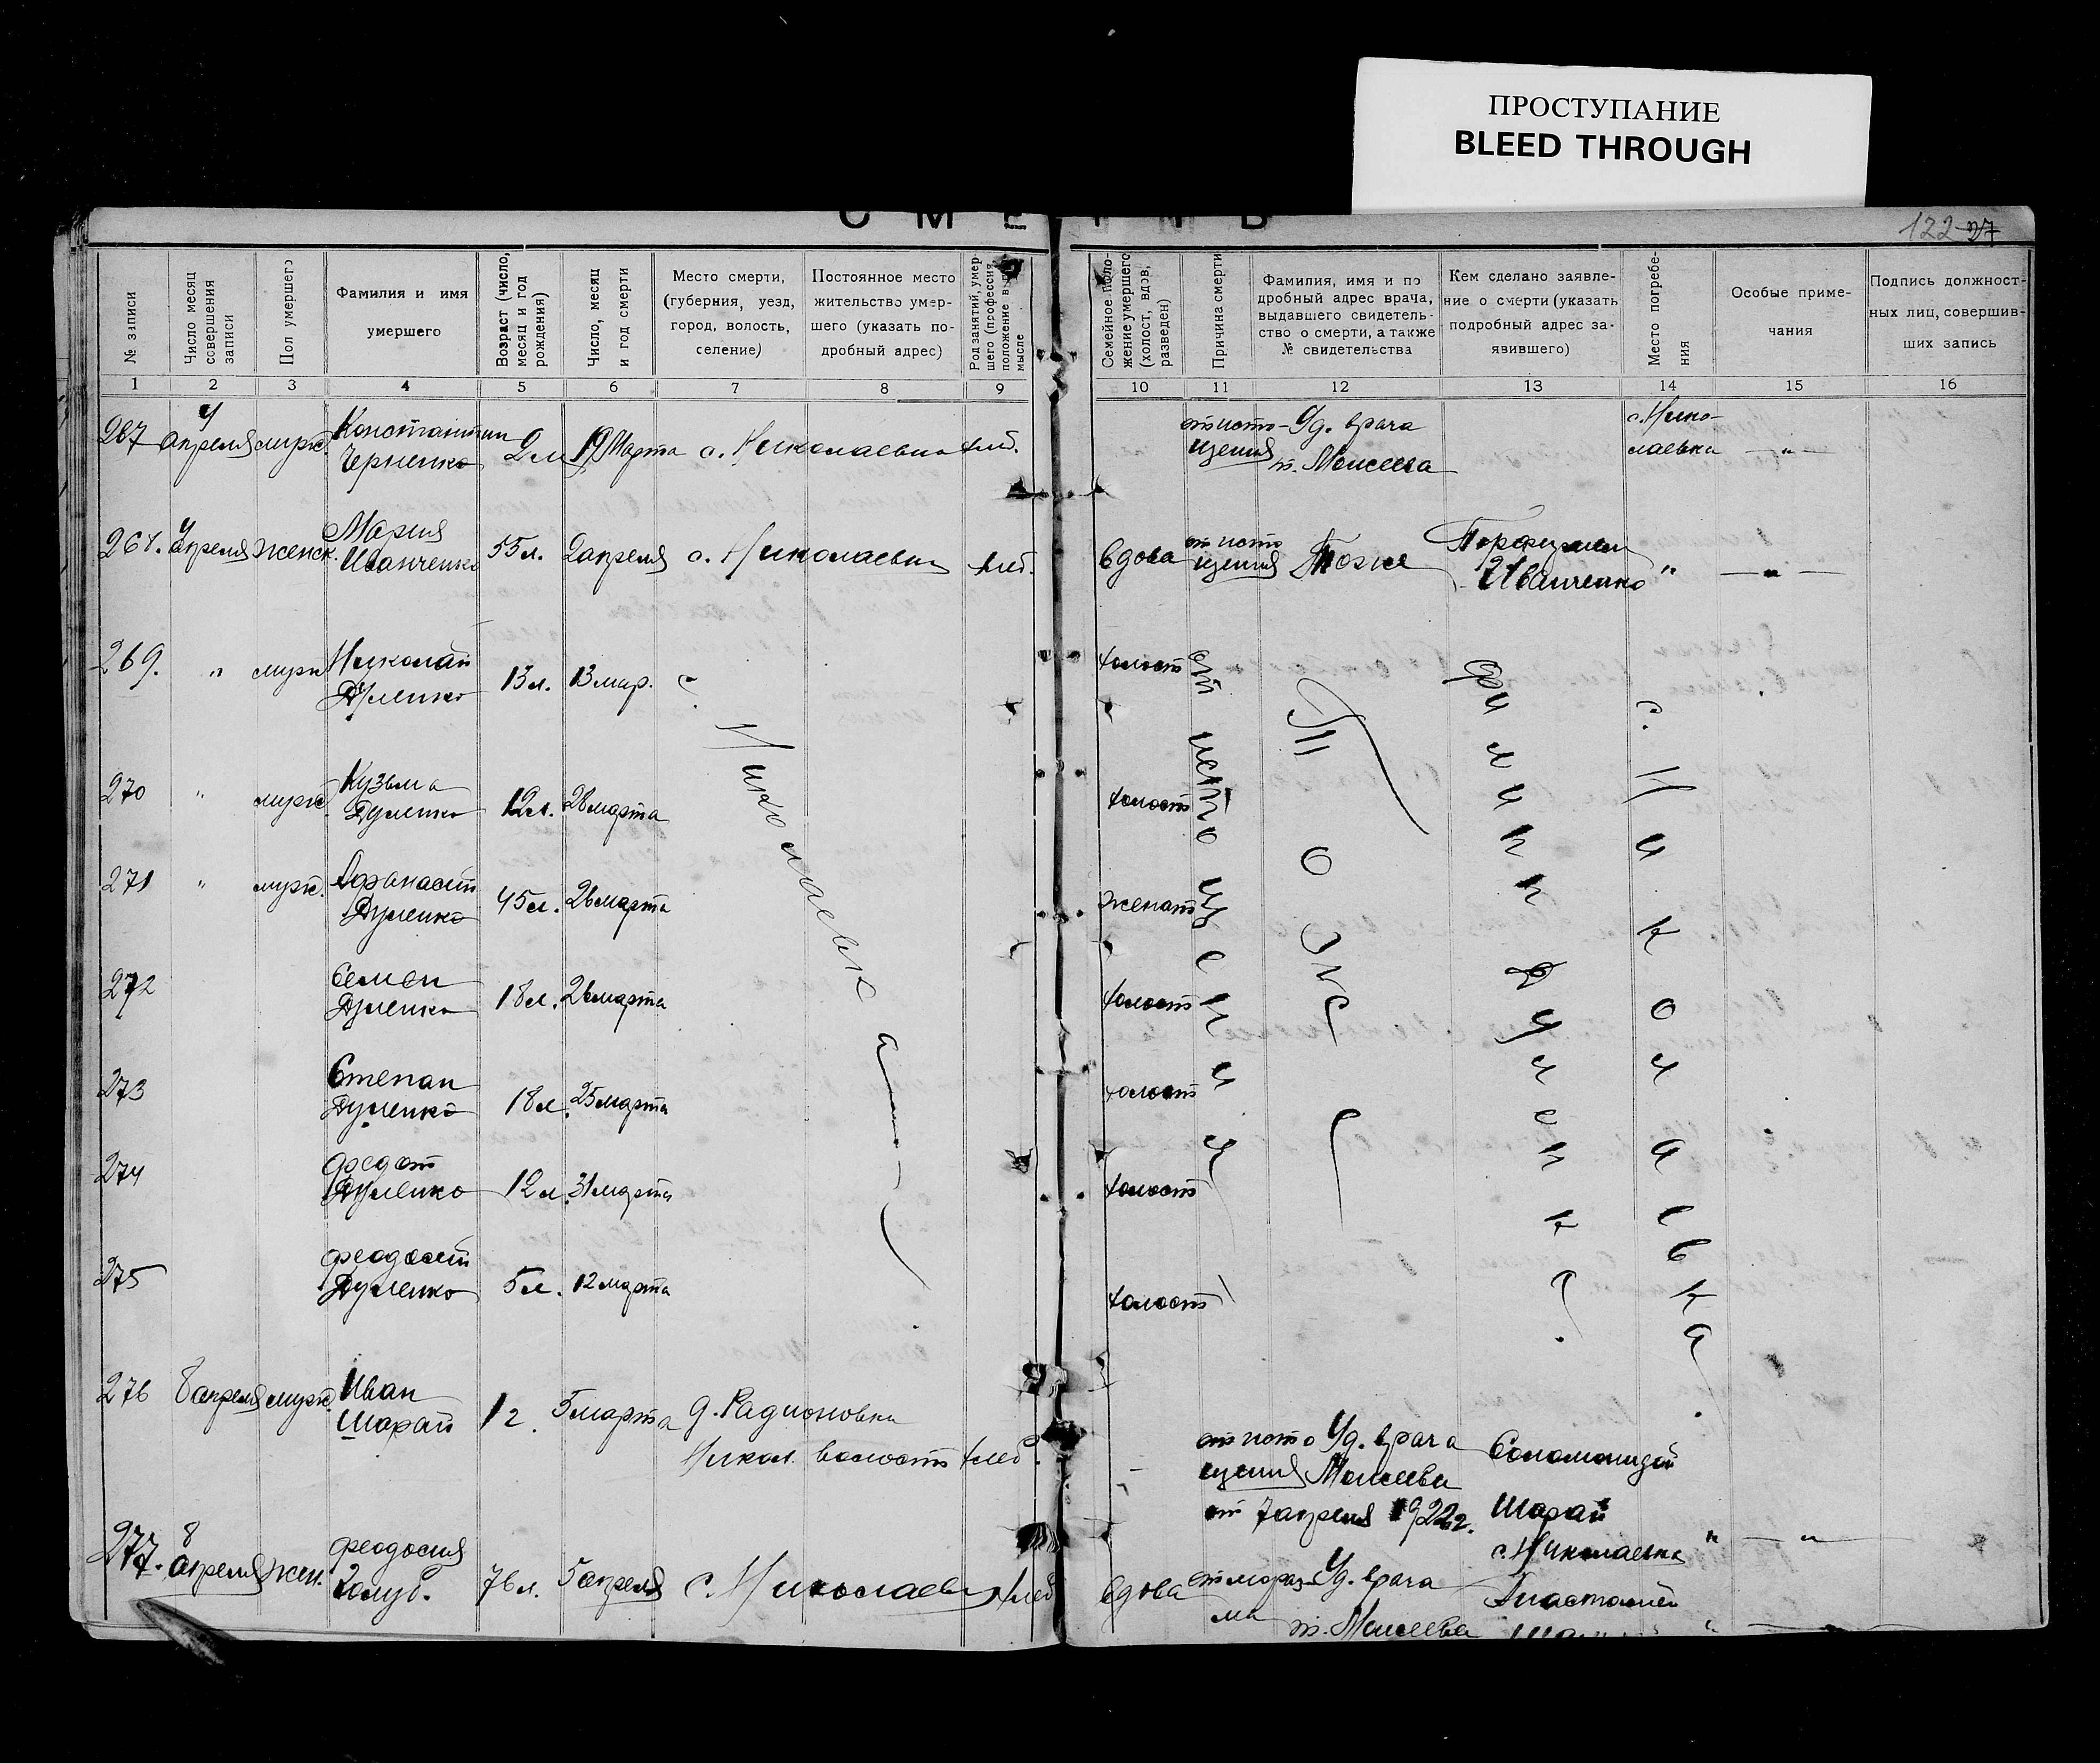 ПРОСТУПАНИЕ
BLEED THROUGH
122 27
№ записи
Число месяц совершения записи
Пол умершего
Фамилия и имя
умершего
Возраст (число, месяц и год рождения)
Число, месяц и год смерти
Место смерти,
(губерния, уезд,
город, волость,
селение)
Постоянное место
жительство умер-
шего (указать по-
дробный адрес)
Род занятий, умер-
шего (профессия,
положение в
мысле
Семейное поло-
жение умершего
(холост, вдов,
разведен)
Причина смерти
Фамилия, имя и по
дробный адрес врача,
выдавшего свидетель-
ство о смерти, а также
№ свидетельства
Кем сделано заявле-
ние о смерти (указать
подробный адрес за-
явившего)
Место погребе-
ния
Особые приме-
чания
Подпись должност-
ных лиц, совершив-
ших запись
1 2 3 4 5 6 7 8 9 10 11 12 13 14 15 16
267 4 апреля мужс. Константин Черненко 2 м 19 Марта с. Николаевка хлеб. от исто-щения Уд. врача т. Моисеева с. Нико-лаевка — " —
268. 4 апреля женск. Мария Иванченко 55 л. 2 апреля с. Николаевка хлеб. вдова от исто щения Тоже Иванченко " — " —
269. " мужс Николай Дуленко 13 л. 13 мар. с. Николаевка холост от истощения Тоже Филипп Дуленко. с. Николаевка.
270 " мужс. Кузьма Дуленко 12 л. 28 марта холост
271 " мужс. Афанасий Дуленко 45 л. 26 марта женат
272 Семен Дуленко 18 л. 26 марта холост
273 Степан Дуленко 18 л. 25 марта холост
274 Федот Дуленко 12 л. 31 марта холост
275 Феодосий Дуленко 5 л. 12 марта холост
276 8 апреля мужс. Иван Шарай 1 г. 5 марта д. Радионовка
Никол. волость хлеб. — от исто щения Уд. врача Моисеева
от 7 апреля 1922 г. Шарай
с. Николаевка " — " —
277. 8 апреля жен. Феодосия Голуб. 76 л. 5 апреля с. Николаевка хлеб вдова Уд. врача
т. Моисеева